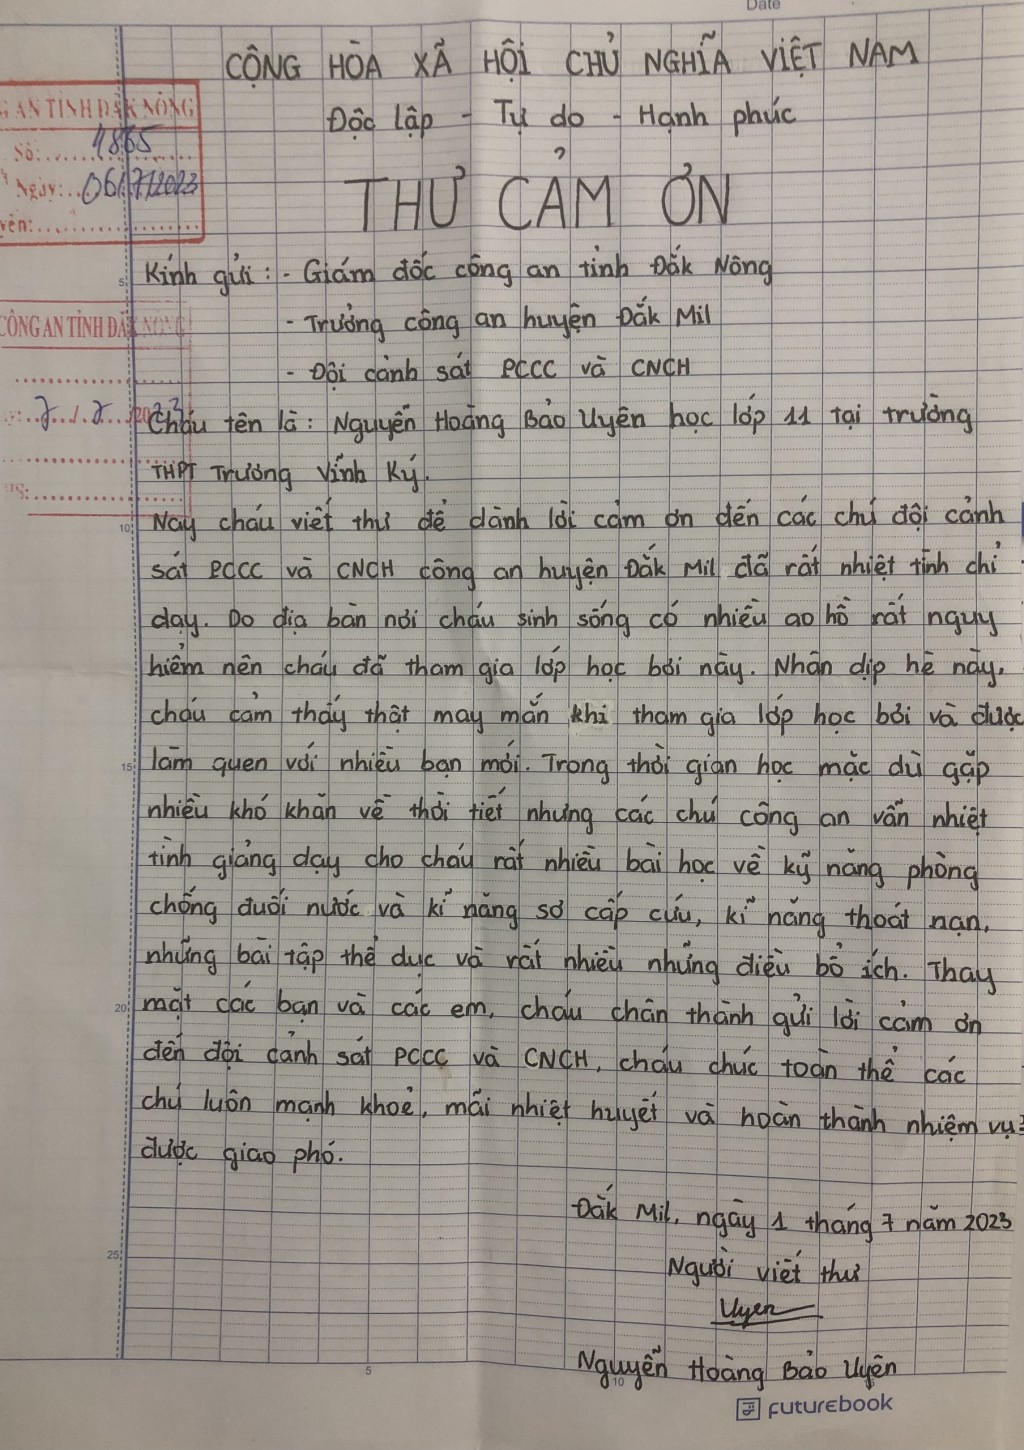 Date
CỘNG HÒA XÃ HỘI CHỦ NGHĨA VIỆT NAM
Độc lập - Tự do - Hạnh phúc
G AN TỈNH ĐẮK NÔNG
Số: 1865
Ngày: 06/7/2023
THƯ CẢM ƠN
Kính gửi: - Giám đốc công an tỉnh Đắk Nông
- Trưởng công an huyện Đắk Mil
CÔNG AN TỈNH ĐẮK NÔNG
- Đội cảnh sát PCCC và CNCH
Cháu tên là: Nguyễn Hoàng Bảo Uyên học lớp 11 tại trường
THPT Trương Vĩnh Ký.
Nay cháu viết thư để dành lời cảm ơn đến các chú đội cảnh
sát PCCC và CNCH công an huyện Đắk Mil đã rất nhiệt tình chỉ
dạy. Do địa bàn nơi cháu sinh sống có nhiều ao hồ rất nguy
hiểm nên cháu đã tham gia lớp học bơi này. Nhân dịp hè này,
cháu cảm thấy thật may mắn khi tham gia lớp học bơi và được
làm quen với nhiều bạn mới. Trong thời gian học mặc dù gặp
nhiều khó khăn về thời tiết nhưng các chú công an vẫn nhiệt
tình giảng dạy cho cháu rất nhiều bài học về kỹ năng phòng
chống đuối nước và kĩ năng sơ cấp cứu, kĩ năng thoát nạn,
những bài tập thể dục và rất nhiều những điều bổ ích. Thay
mặt các bạn và các em, cháu chân thành gửi lời cảm ơn
đến đội cảnh sát PCCC và CNCH, cháu chúc toàn thể các
chú luôn mạnh khoẻ, mãi nhiệt huyết và hoàn thành nhiệm vụ
được giao phó.
Đắk Mil, ngày 1 tháng 7 năm 2023
Người viết thư
Uyen
Nguyễn Hoàng Bảo Uyên
futurebook